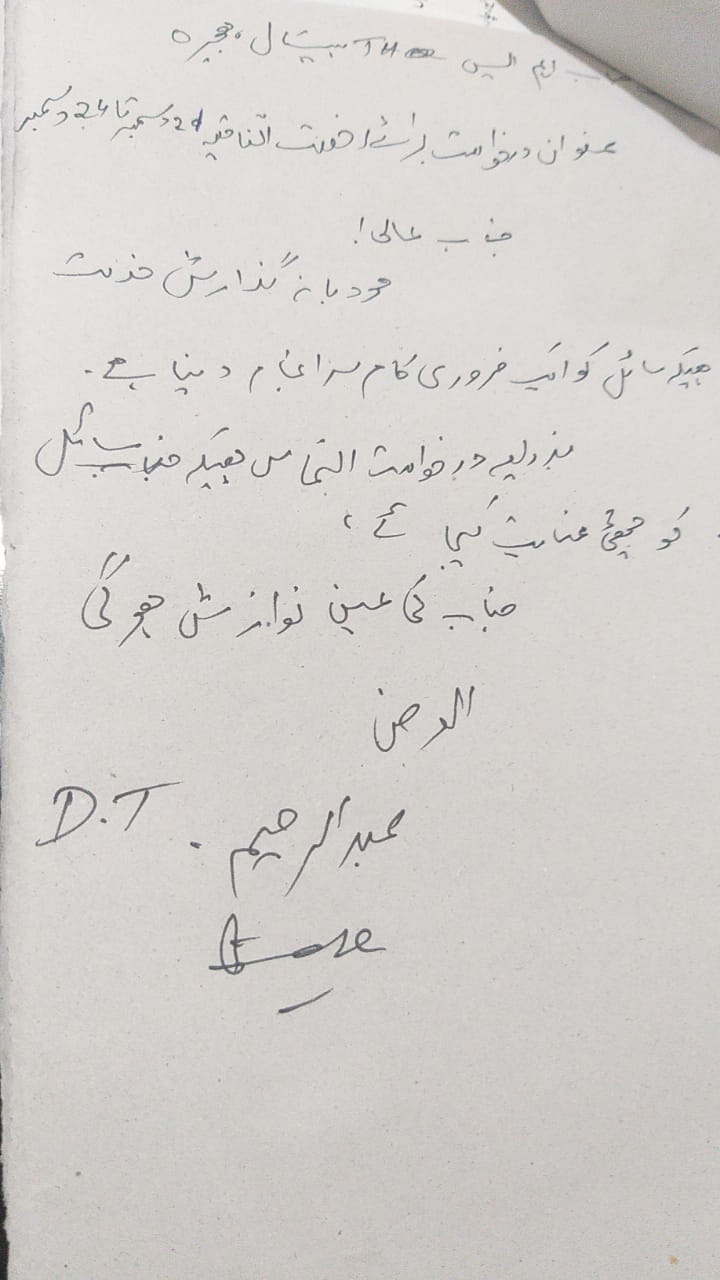 جناب ایم ایس THQ ہسپتال، ہجیرہ
عنوان درخواست برائے رخصت اتفاقیہ 21 دسمبر تا 24 دسمبر
جناب عالی!
مودبانہ گذارش خدمت
ہیکہ سائل کو ایک ضروری کام سرانجام دینا ہے۔
بذریعہ درخواست التماس ہیکہ جناب سائل
کو چھٹی عنایت کیجائے،
جناب کی عین نوازش ہوگی
العرض
عبدالرحیم . D.T